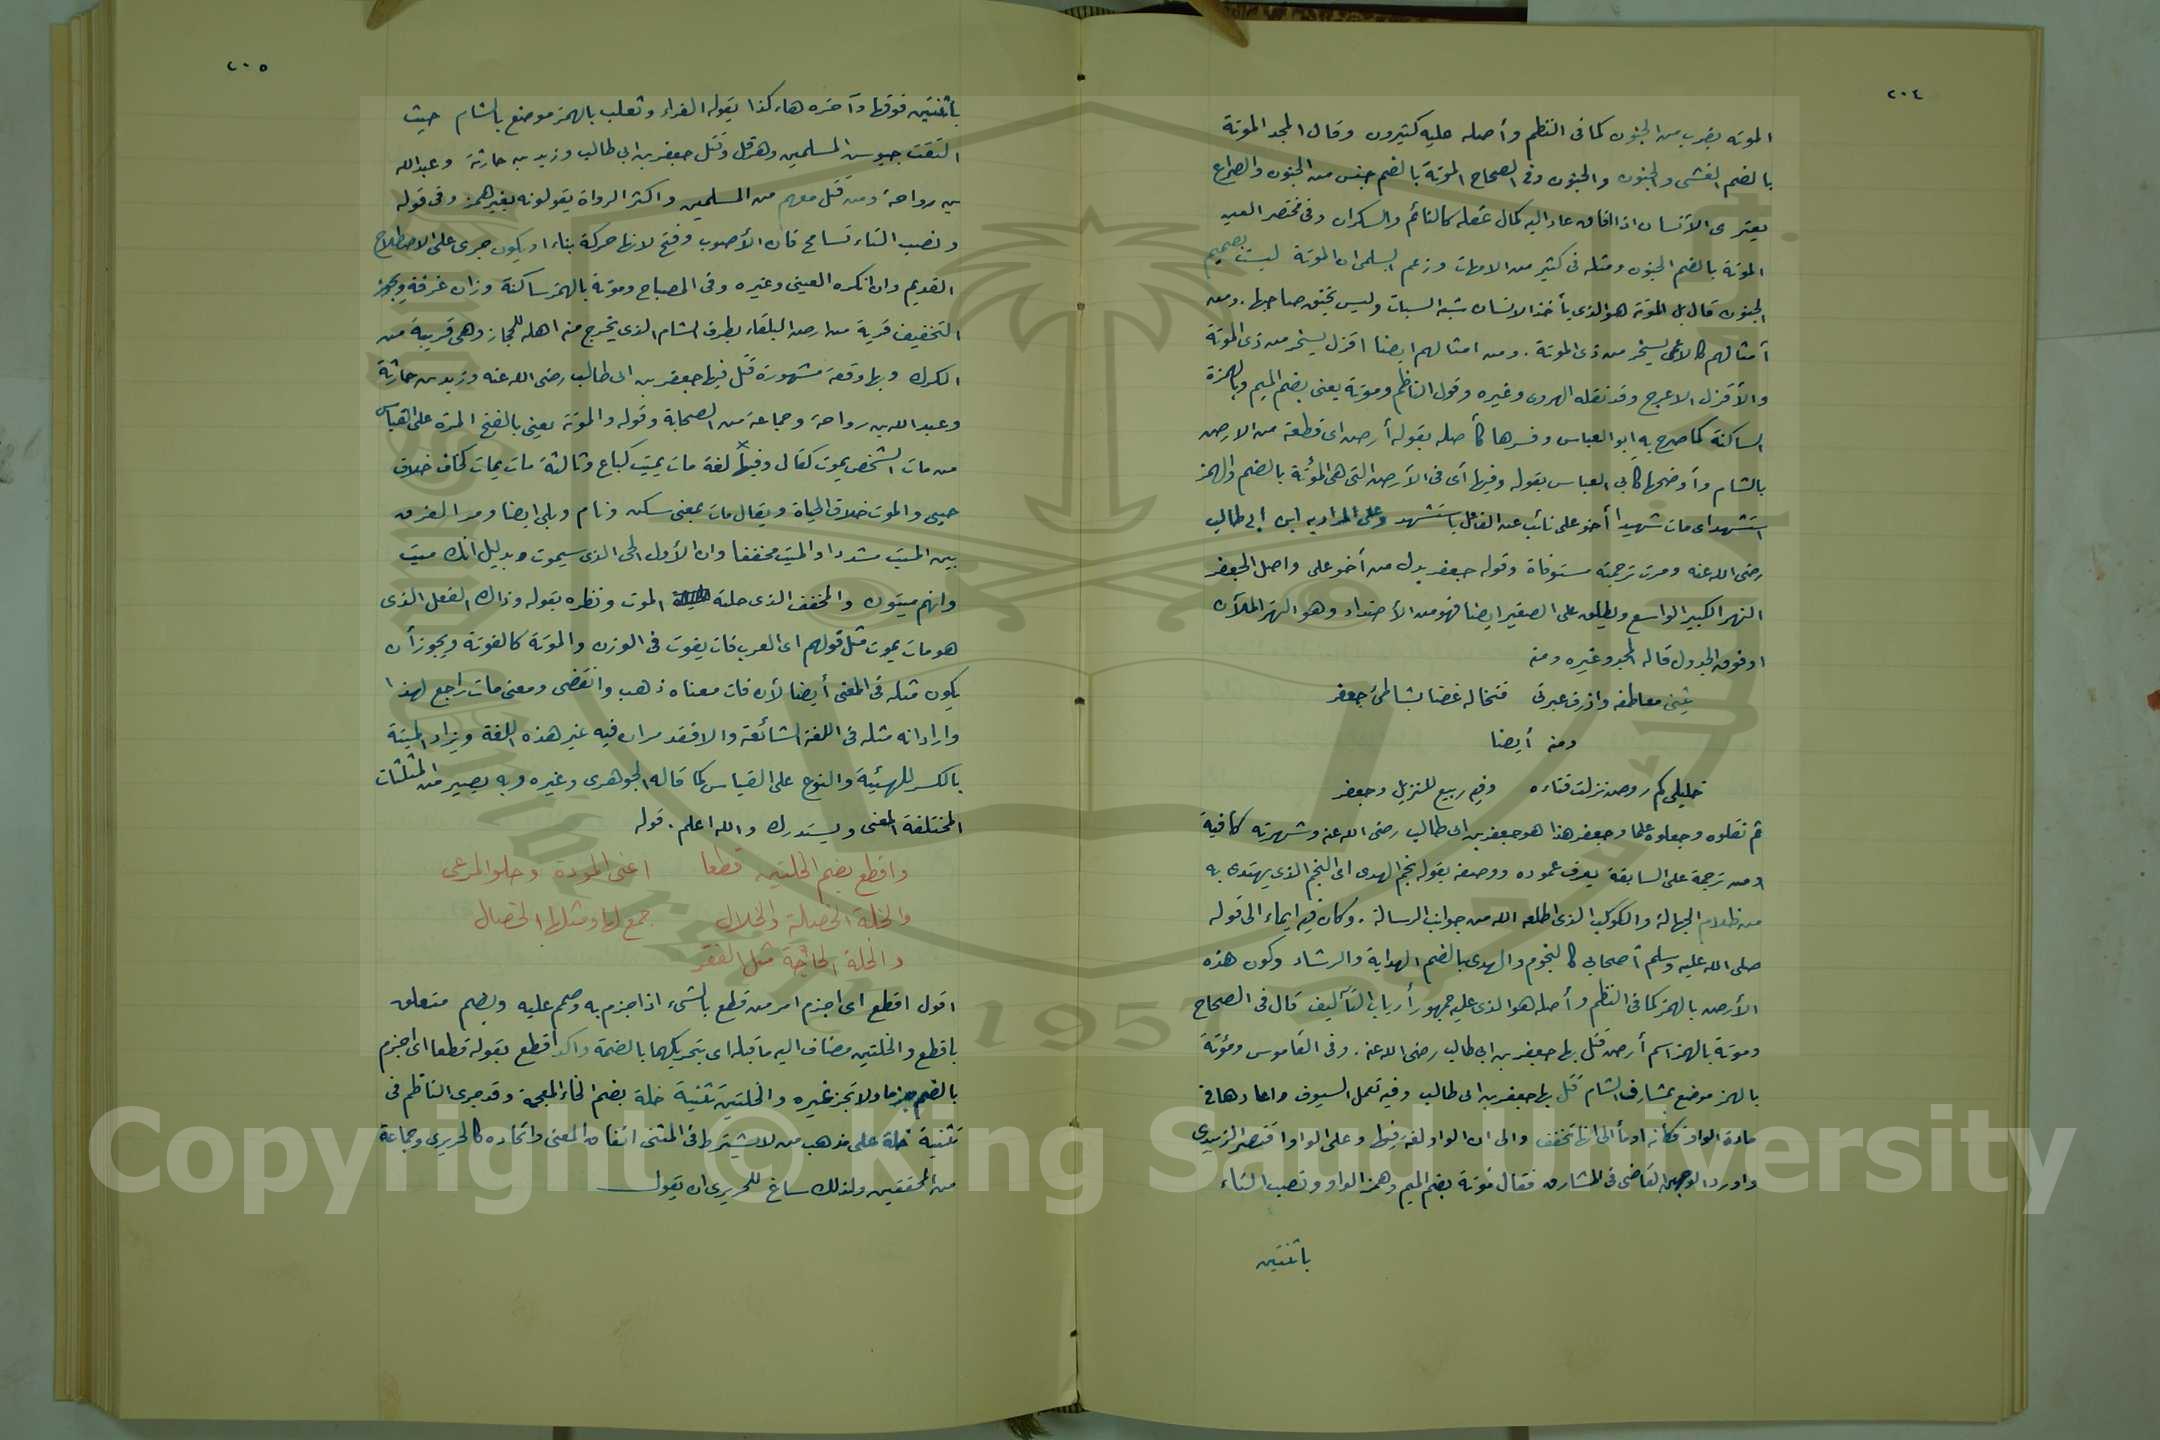 ٢٠٤
الموته بضرب من الجنون كما فى النظم وأصله عليه كثيرون وقال المجد الموتة
بالضم الغشى والجنون والجنون وفى الصحاح الموتة بالضم جنس من الجنون والصراع
يعترى الأنسان اذا افاق عاد اليه كمال عقله كالنائم والسكران وفى مختصر العين
الموتة بالضم الجنون ومثله فى كثير من الامهات وزعم السلمى ان الموتة ليست بصميم
الجنون قال بل الموتة هو الذى يأخذ الانسان شبه السبات وليس يخنق صاحبها . ومن
أمثالهم كالاعمى يسخر من ذى الموتة . ومن امثالهم ايضا اقزل يسخر من ذى الموتة
والأقزل الاعرج وقد نقله الهروى وغيره وقول الناظم وموتة يعنى بضم الميم وبالهمزة
الساكنة كما صرح به ابو العباس وفسرها كأصله بقوله أرض اى قطعة من الارض
بالشام وأوضحها كأبى العباس بقوله وفيها أى فى الأرض التى هى المؤتة بالضم والهمز
استشهد اى مات شهيدا أخو على نائب عن الفاعل باستشهد وعلى المراد به ابن ابى طالب
رضى الله عنه ومرت ترجمته مستوفاة وقوله جعفر بدل من أخو على واصل الجعفر
النهر الكبير الواسع ويطلق على الصغير ايضا فهو من الأضداد وهو النهر الملآن
او فوق الجدول قاله المجد وغيره ومنه
يثنى معاطفه واذرف عبرتى فتخاله غصنا بشاطئ جعفر
ومنه أيضا
خليلى كم روض نزلت فناءه وفيه ربيع للنزيل وجعفر
ثم نقلوه وجعلوه علما وجعفر هذا هو جعفر بن ابى طالب رضى الله عنه وشهرته كافية
ومن ترجمة على السابقة يعرف عموده ووصفه بقوله نجم الهدى اى النجم الذى يهتدى به
من ظلام الجهالة والكوكب الذى اطلعه الله من جوانب الرسالة . وكأن فيه ايماء الى قوله
صلى الله عليه وسلم أصحابى كالنجوم والهدى بالضم الهداية والرشاد وكون هذه
الأرض بالهمز كما فى النظم وأصله هو الذى عليه جمهور أرباب التآليف قال فى الصحاح
وموتة بالهمز اسم أرض قتل بها جعفر بن ابى طالب رضى الله عنه . وفى القاموس ومؤتة
بالهمز موضع بمشارف الشام قتل بها جعفر بن ابى طالب وفيه تعمل السيوف واعادها فى
مادة الواو فكأنه اومأ الى انها تخفف والى ان الواو لغة فيها وعلى الواو اقتصر الزبيدى
واورد الوجهين القاضى فى المشارق فقال مؤتة بضم الميم وهمز الواو ونصب التاء
باثنتين
٢٠٥
باثنتين فوقها وآخره هاء كذا يقوله الفراء وثعلب بالهمز موضع بالشام حيث
التقت جيوش المسلمين وهرقل وقتل جعفر بن ابى طالب وزيد بن حارثة وعبد الله
بن رواحة ومن قتل معهم من المسلمين واكثر الرواة يقولونه بغير همز وفى قوله
ونصب التاء تسامح فان الأصوب وفتح لانها حركة بناء او يكون جرى على الاصطلاح
القديم وان انكره العينى وغيره وفى المصباح ومؤتة بالهمز ساكنة وزان غرفة ويجوز
التخفيف قرية من ارض البلقاء بطرف الشام الذى يخرج منه اهله للحجاز وهى قريبة من
الكرك وبها وقعة مشهورة قتل فيها جعفر بن ابى طالب رضى الله عنه وزيد بن حارثة
وعبد الله بن رواحة وجماعة من الصحابة وقوله والموتة يعنى بالفتح المرة على القياس
من مات الشخص يموت كقال وفيها لغة مات يميت كباع وثالثة مات يمات كخاف خلاف
حيى والموت خلاف الحياة ويقال مات بمعنى سكن ونام وبلى ايضا ومر الفرق
بين الميت مشددا والميت مخففا وان الأول الحى الذى سيموت بدليل انك ميت
وانهم ميتون والمخفف الذى حلته الموت ونظره بقوله وذاك الفعل الذى
هو مات يموت مثل قولهم اى العرب فات يفوت فى الوزن والموتة كالفوتة ويجوز أن
يكون مثله فى المعنى أيضا لأن فات معناه ذهب وانقضى ومعنى مات راجع لهذا
وارادانه مثله فى اللغة الشائعة والا فقد مر ان فيه غير هذه اللغة ويزاد الميتة
بالكسر للهيئة والنوع على القياس كما قاله الجوهرى وغيره وبه يصير من المثلثات
المختلفة المعنى ويستدرك والله اعلم . قوله
واقطع بضم الخلتين قطعا اعنى المودة وحلو المرعى
والخلة الخصلة والخلال جمع لها ومثلها الخصال
والخلة الحاجة مثل الفقر
اقول اقطع اى اجزم امر من قطع بالشىء اذا جزم به وصمم عليه وبضم متعلق
باقطع والخلتين مضاف اليه ما قبله اى بتحريكهما بالضمة واكد اقطع بقوله قطعا اى اجزم
بالضم جزما ولا تجز غيره والخلتين تثنية خلة بضم الخاء المعجمة وقد جرى الناظم فى
تثنية خلة على مذهب من لا يشترط فى المثنى اتفاق المعنى واتحاده كالحريرى وجماعة
من المحققين ولذلك ساغ للحريرى ان يقول
1957
Copyright © King Saud University